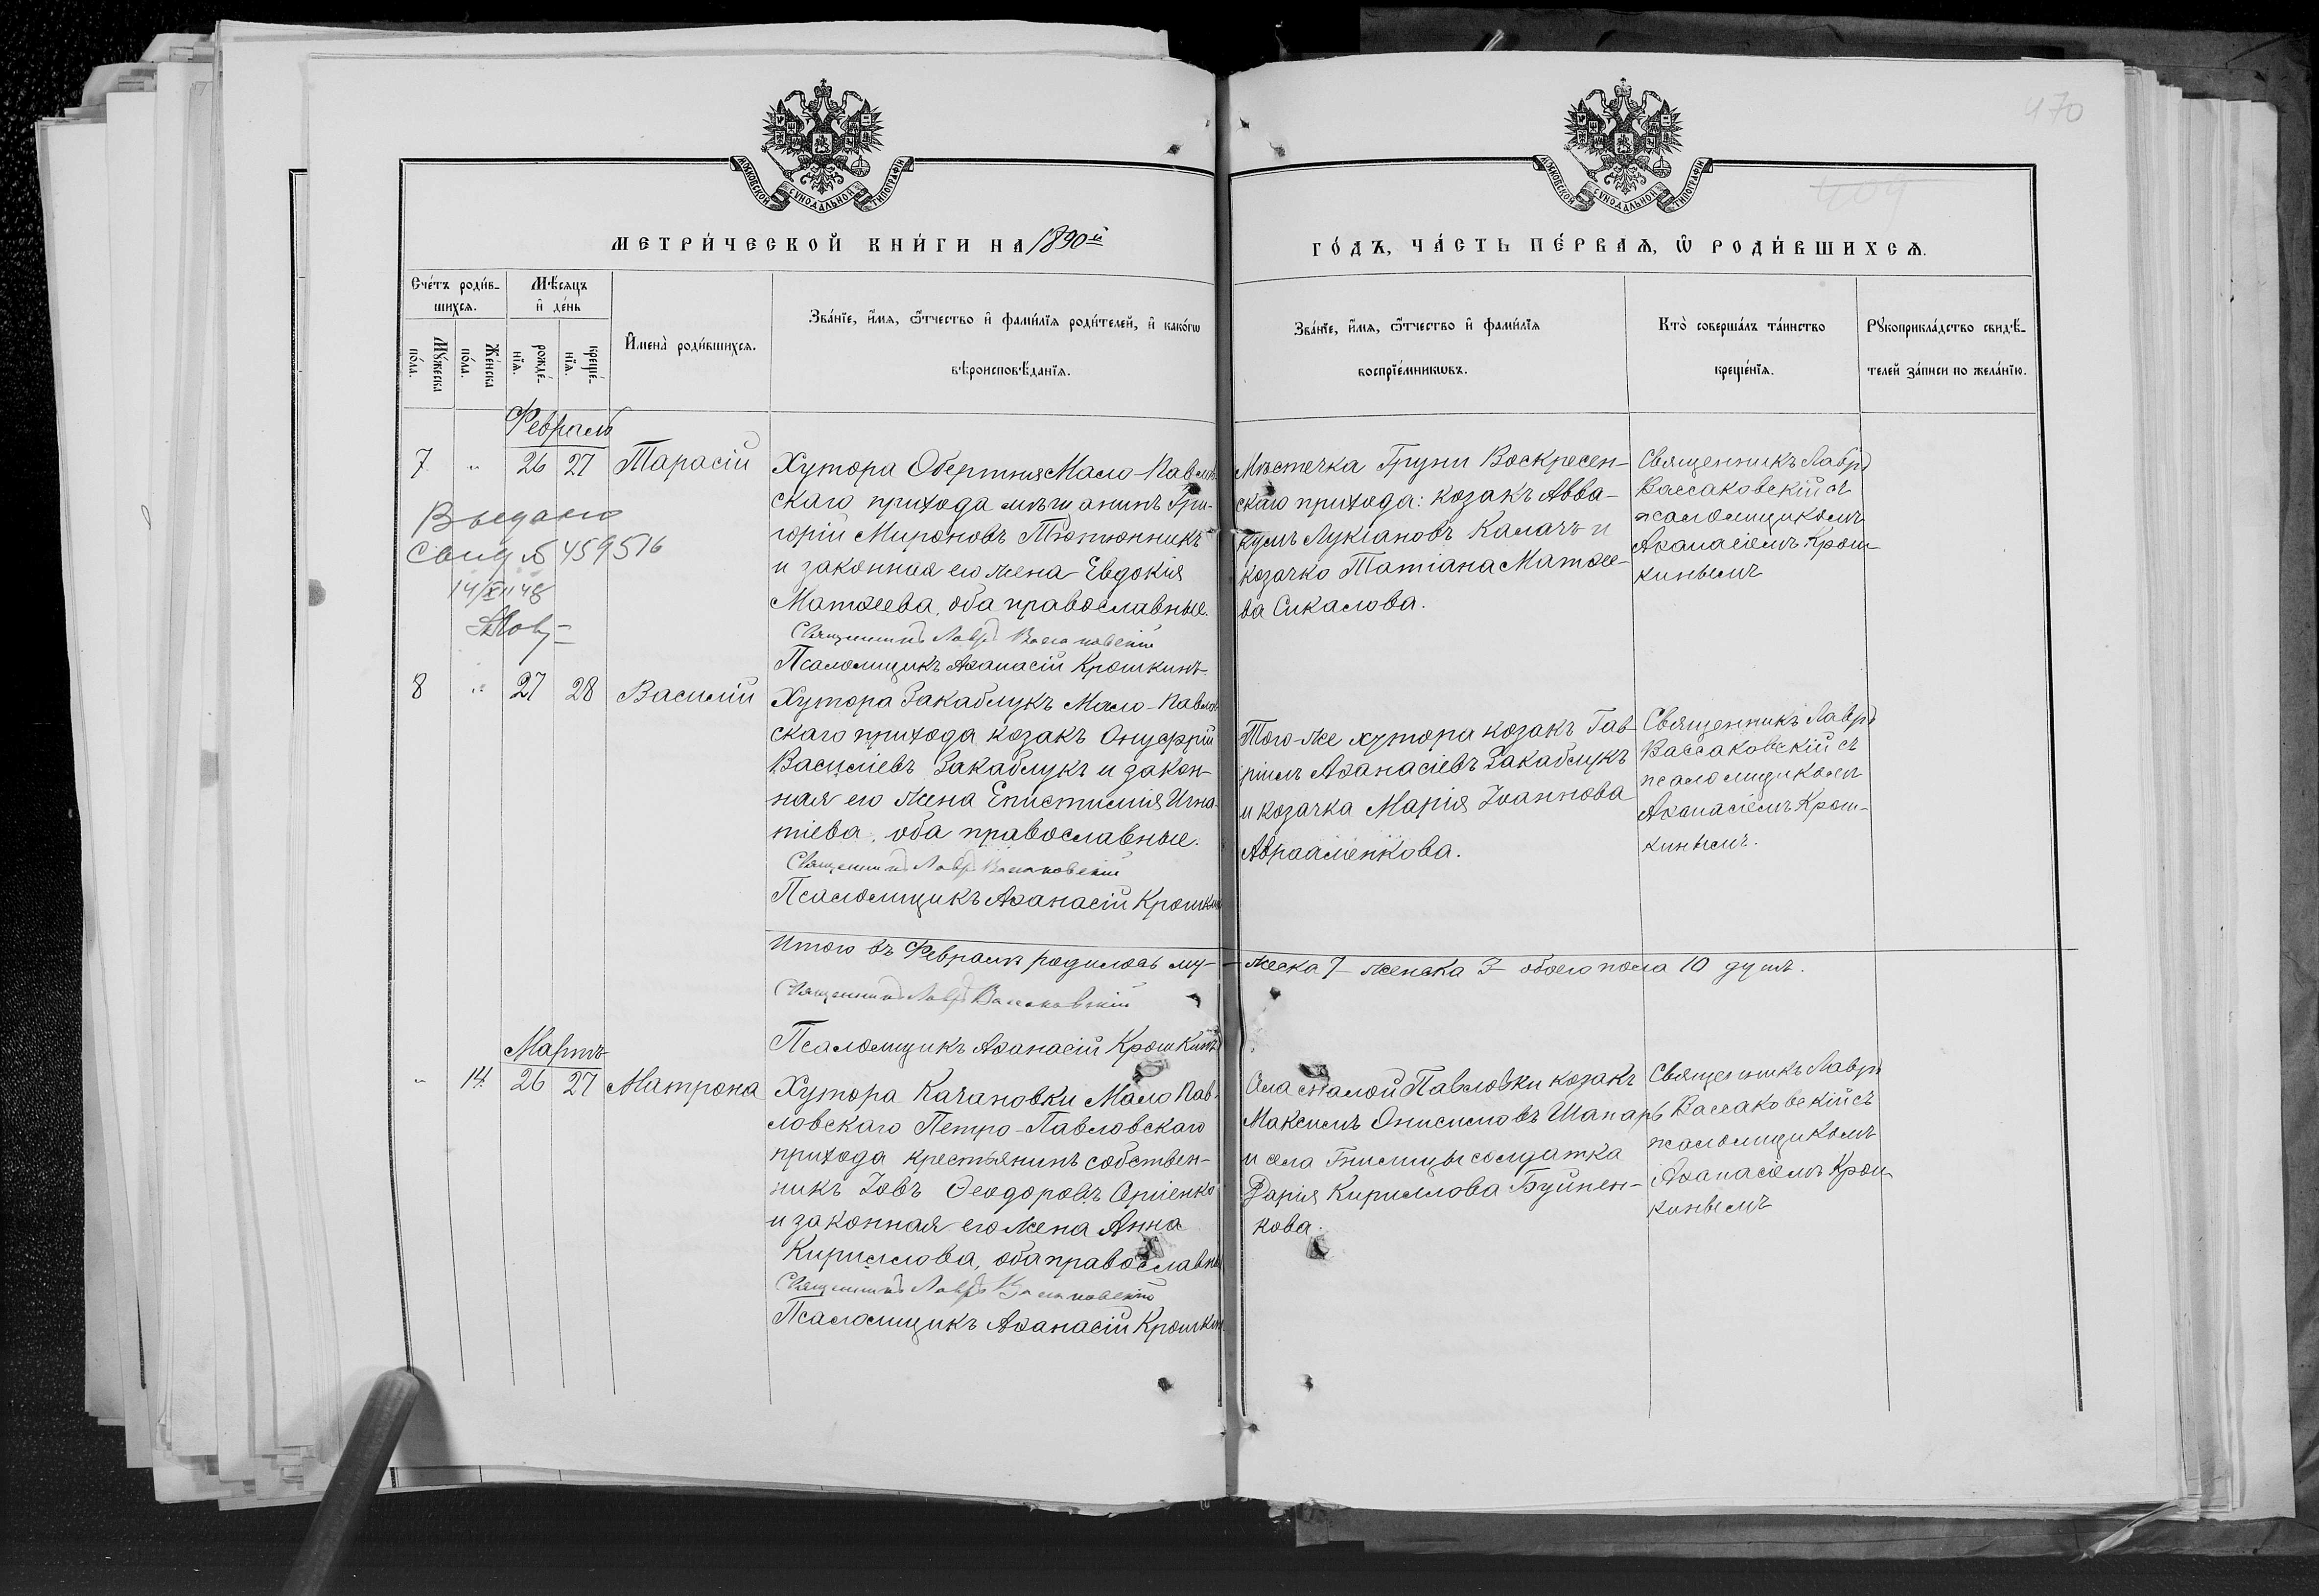 170
МОСКОВСКОЙ СѴНОДАЛЬНОЙ ТИПОГРАФІИ
МОСКОВСКОЙ СѴНОДАЛЬНОЙ ТИПОГРАФІИ
МЕТРИ́ЧЕСКОЙ КНИ́ГИ НА 1890й
ГО́ДЪ, ЧА́СТЬ ПЕ́РВАЯ, Ѿ РОДИ́ВШИХСЯ.
Сче́тъ роди́в-
шихся.
Мѣ́сяцъ
и҆ де́нь
Мꙋ́жеска
по́ла.
Же́нска
по́ла.
рожде́-
нїя.
креще́-
нїя.
И҆мена̀ роди́вшихся.
Зва́нїе, и҆́мя, ѻ҆́тчество и҆ фами́лїя роди́телей, и҆ како́гѡ
вѣроисповѣ́данїя.
Зва́нїе, и҆́мя, ѻ҆́тчество и҆ фами́лїя
воспрїе́мникѡвъ.
Кто̀ соверша́лъ та́инство
креще́нїя.
Рꙋкоприкла́дство свидѣ́-
телей за́писи по жела́нїю.
Февраль
7 " 26 27 Тарасій
Хутора Обертня Мало-Павлов
скаго прихода мѣщанинъ Гри-
горій Мироновъ Тютюнникъ
и законная его жена Евдокія
Матѳеева, оба православные.
Священникъ Лавръ Вассаковскій
Псаломщикъ Аѳанасій Крошкинъ
Мѣстечка Груни Воскресен-
скаго прихода: козакъ Авва-
кумъ Лукіановъ Калачъ и
козачка Татіана Матѳее-
ва Сикалова.
Священникъ Лавръ
Вассаковскій съ
псаломщикомъ
Аѳанасіемъ Крош-
кинымъ
Выдано
Свид № 459516
14/XII 48
8 " 27 28 Василій
Хутора Закаблукъ Мало-Павлов
скаго прихода козакъ Онуфрій
Василіевъ Закаблукъ и закон-
ная его жена Епистимія Игна-
тіева, оба православные.
Священникъ Лавръ Вассаковскій
Псаломщикъ Аѳанасій Крошкин
Того-же хутора козакъ Гав-
ріилъ Аѳанасіевъ Закаблукъ
и козачка Марія Іоаннова
Авраменкова.
Священникъ Лавръ
Вассаковскій съ
псаломщикомъ
Аѳанасіемъ Крош-
кинымъ.
Итого въ Февралѣ родилось му-жеска 7 женска 3 обоего пола 10 душъ.
Священникъ Лавръ Вассаковскій
Псаломщикъ Аѳанасій Крошкинъ
Мартъ
" 14. 26 27 Матрона
Хутора Качановки Мало Пав-
ловскаго Петро-Павловскаго
прихода крестьянинъ собствен-
никъ Іовъ Ѳеодоровъ Оріенко
и законная его жена Анна
Кириллова, оба православны
Священникъ Лавръ Вассаковскій
Псаломщикъ Аѳанасій Крошкин
Села Малой Павловки козакъ
Максимъ Онисимовъ Шапарь
и села Гнилицы солдатка
Дарія Кириллова Буйнен-
кова.
Священникъ Лавръ
Вассаковскій съ
псаломщикомъ
Аѳанасіемъ Крош-
кинымъ